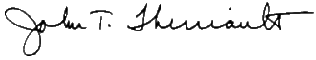 John T. Therriault